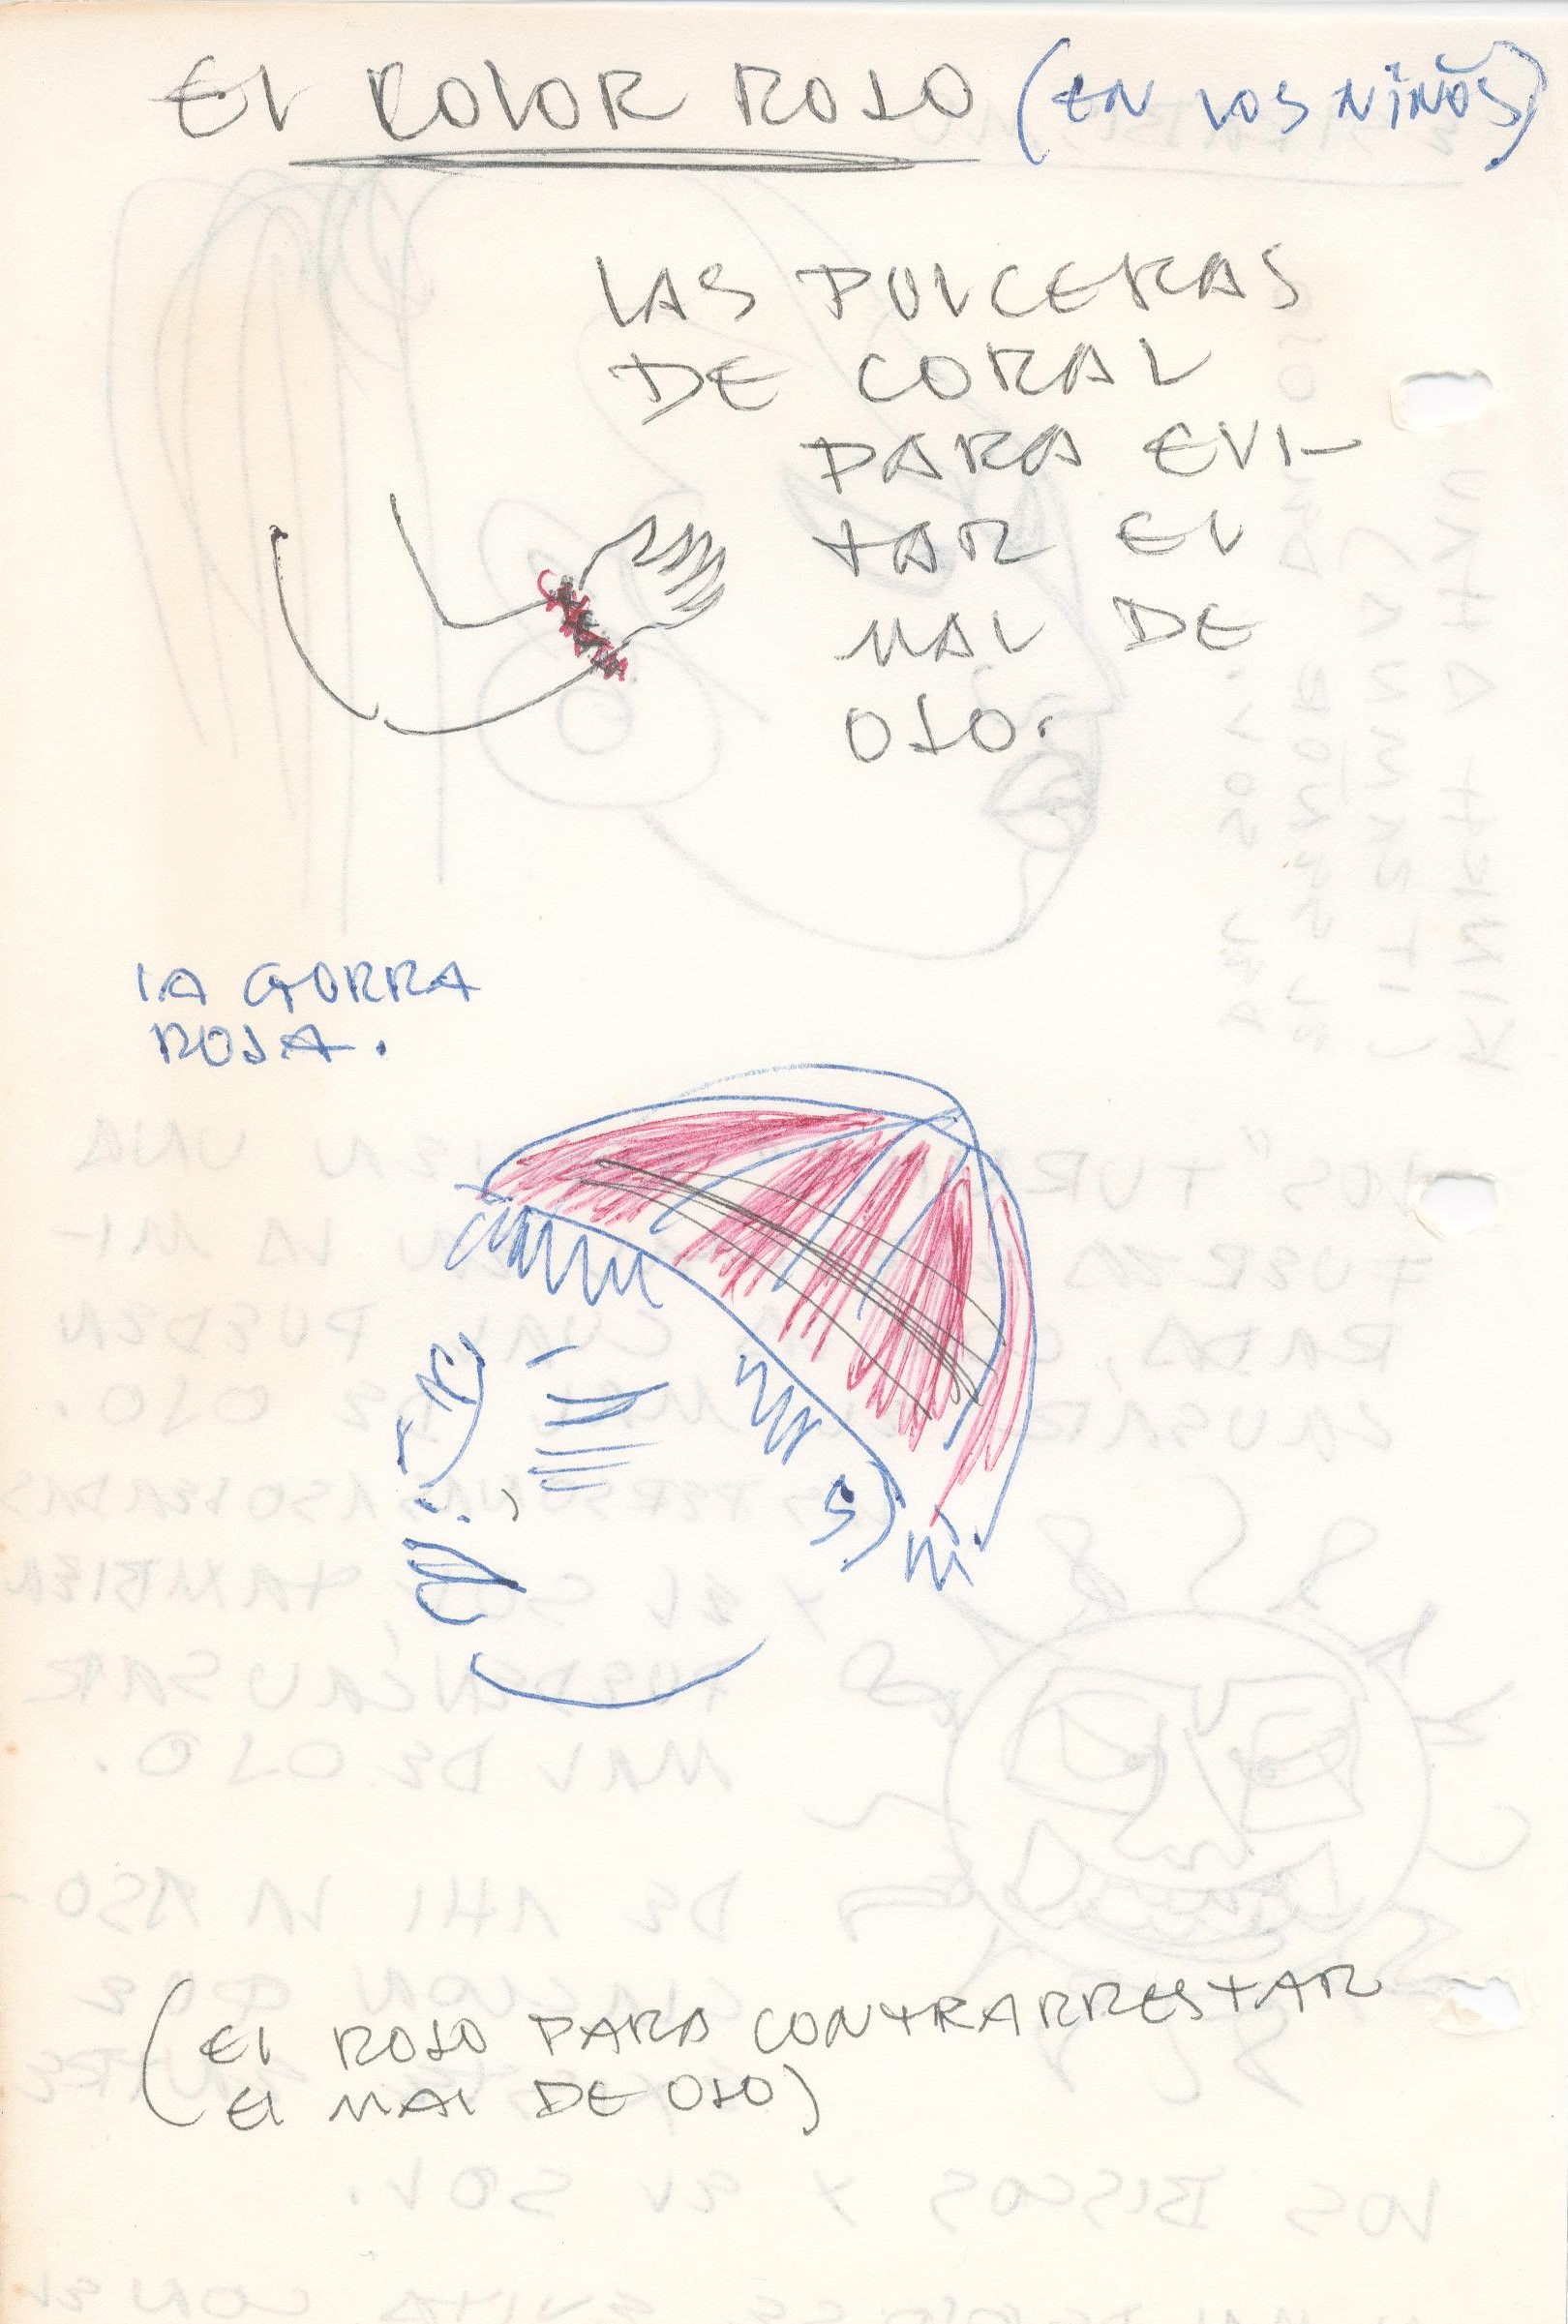 EL COLOR ROJO (EN LOS NIÑOS)
LAS PULCERAS
DE CORAL
PARA EVI-
TAR EL
MAL DE
OJO.
LA GORRA
ROJA.
(EL ROJO PARA CONTRARRESTAR
EL MAL DE OJO)